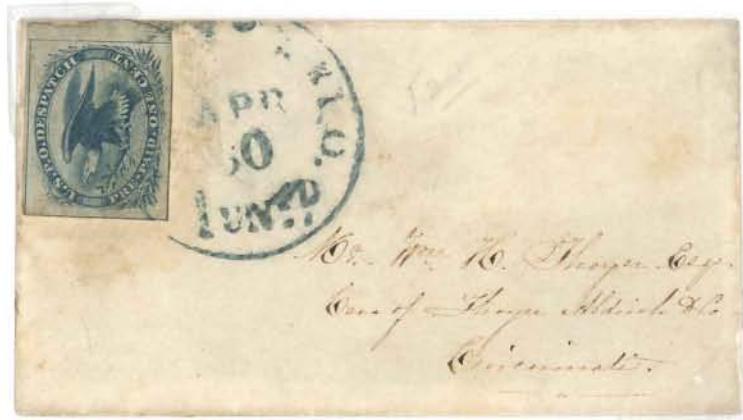 U.S.P.O. DESPATCH
PRE-PAID. ONE CENT.
APR
30
Mr. Wm. H. Thayer Esq.
Care of Thayer Aldrich & Co
Cincinnati.